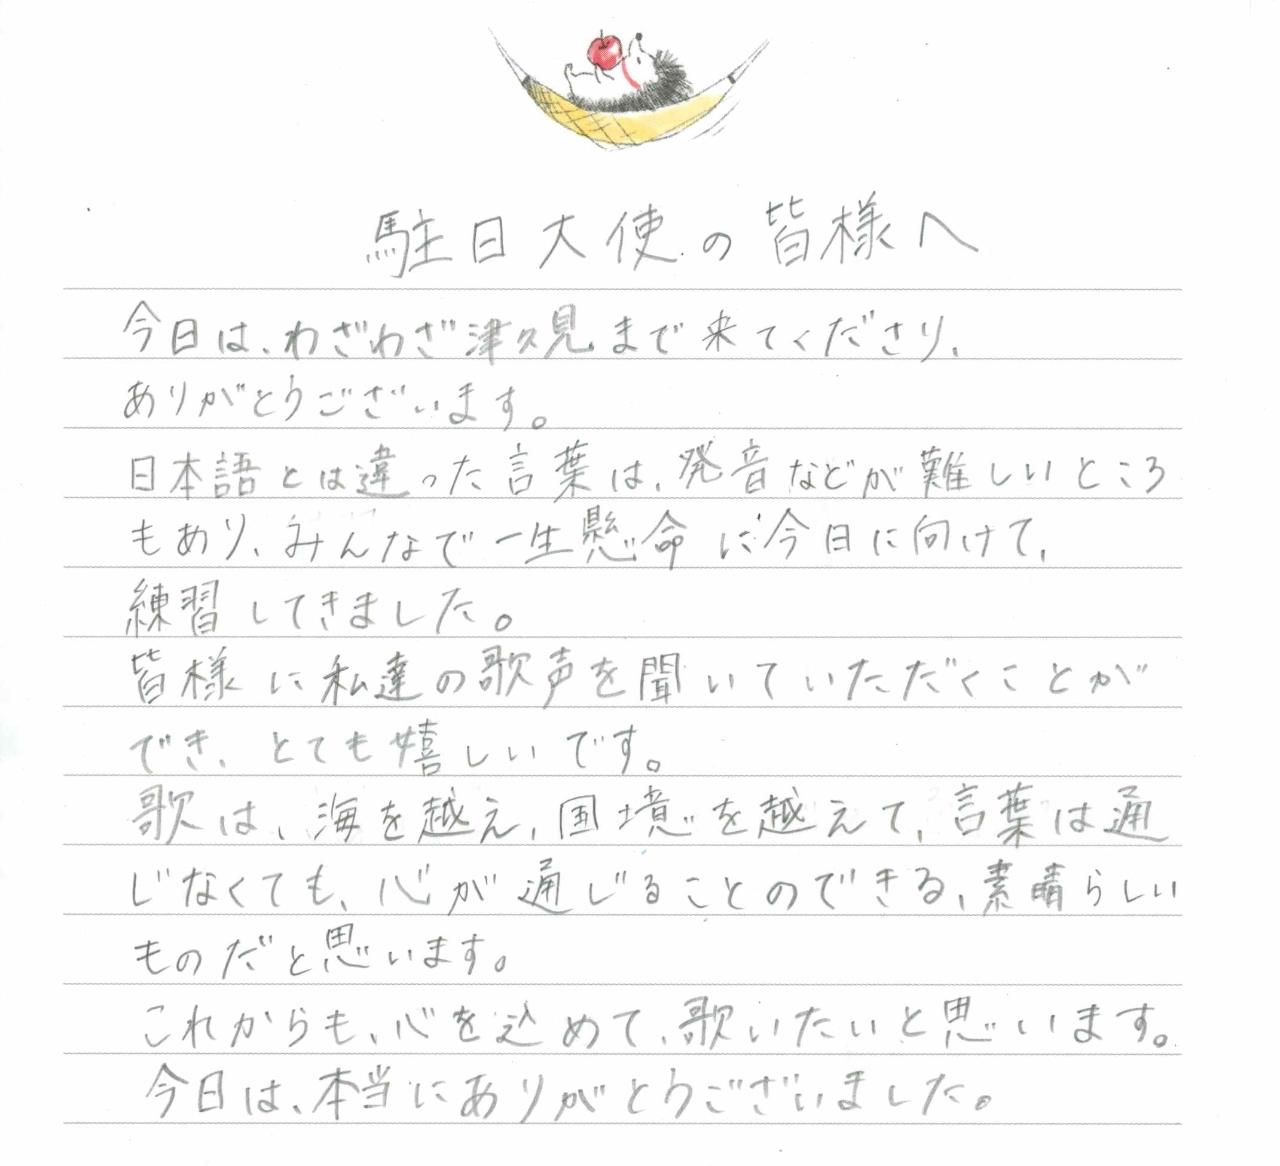 駐日大使の皆様へ
今日は、わざわざ津久見まで来てくださり、
ありがとうございます。
日本語とは違った言葉は、発音などが難しいところ
もあり、みんなで一生懸命に今日に向けて、
練習してきました。
皆様に私達の歌声を聞いていただくことが
でき、とても嬉しいです。
歌は、海を越え、国境を越えて、言葉は通
じなくても、心が通じることのできる、素晴らしい
ものだと思います。
これからも、心を込めて、歌いたいと思います。
今日は、本当にありがとうございました。